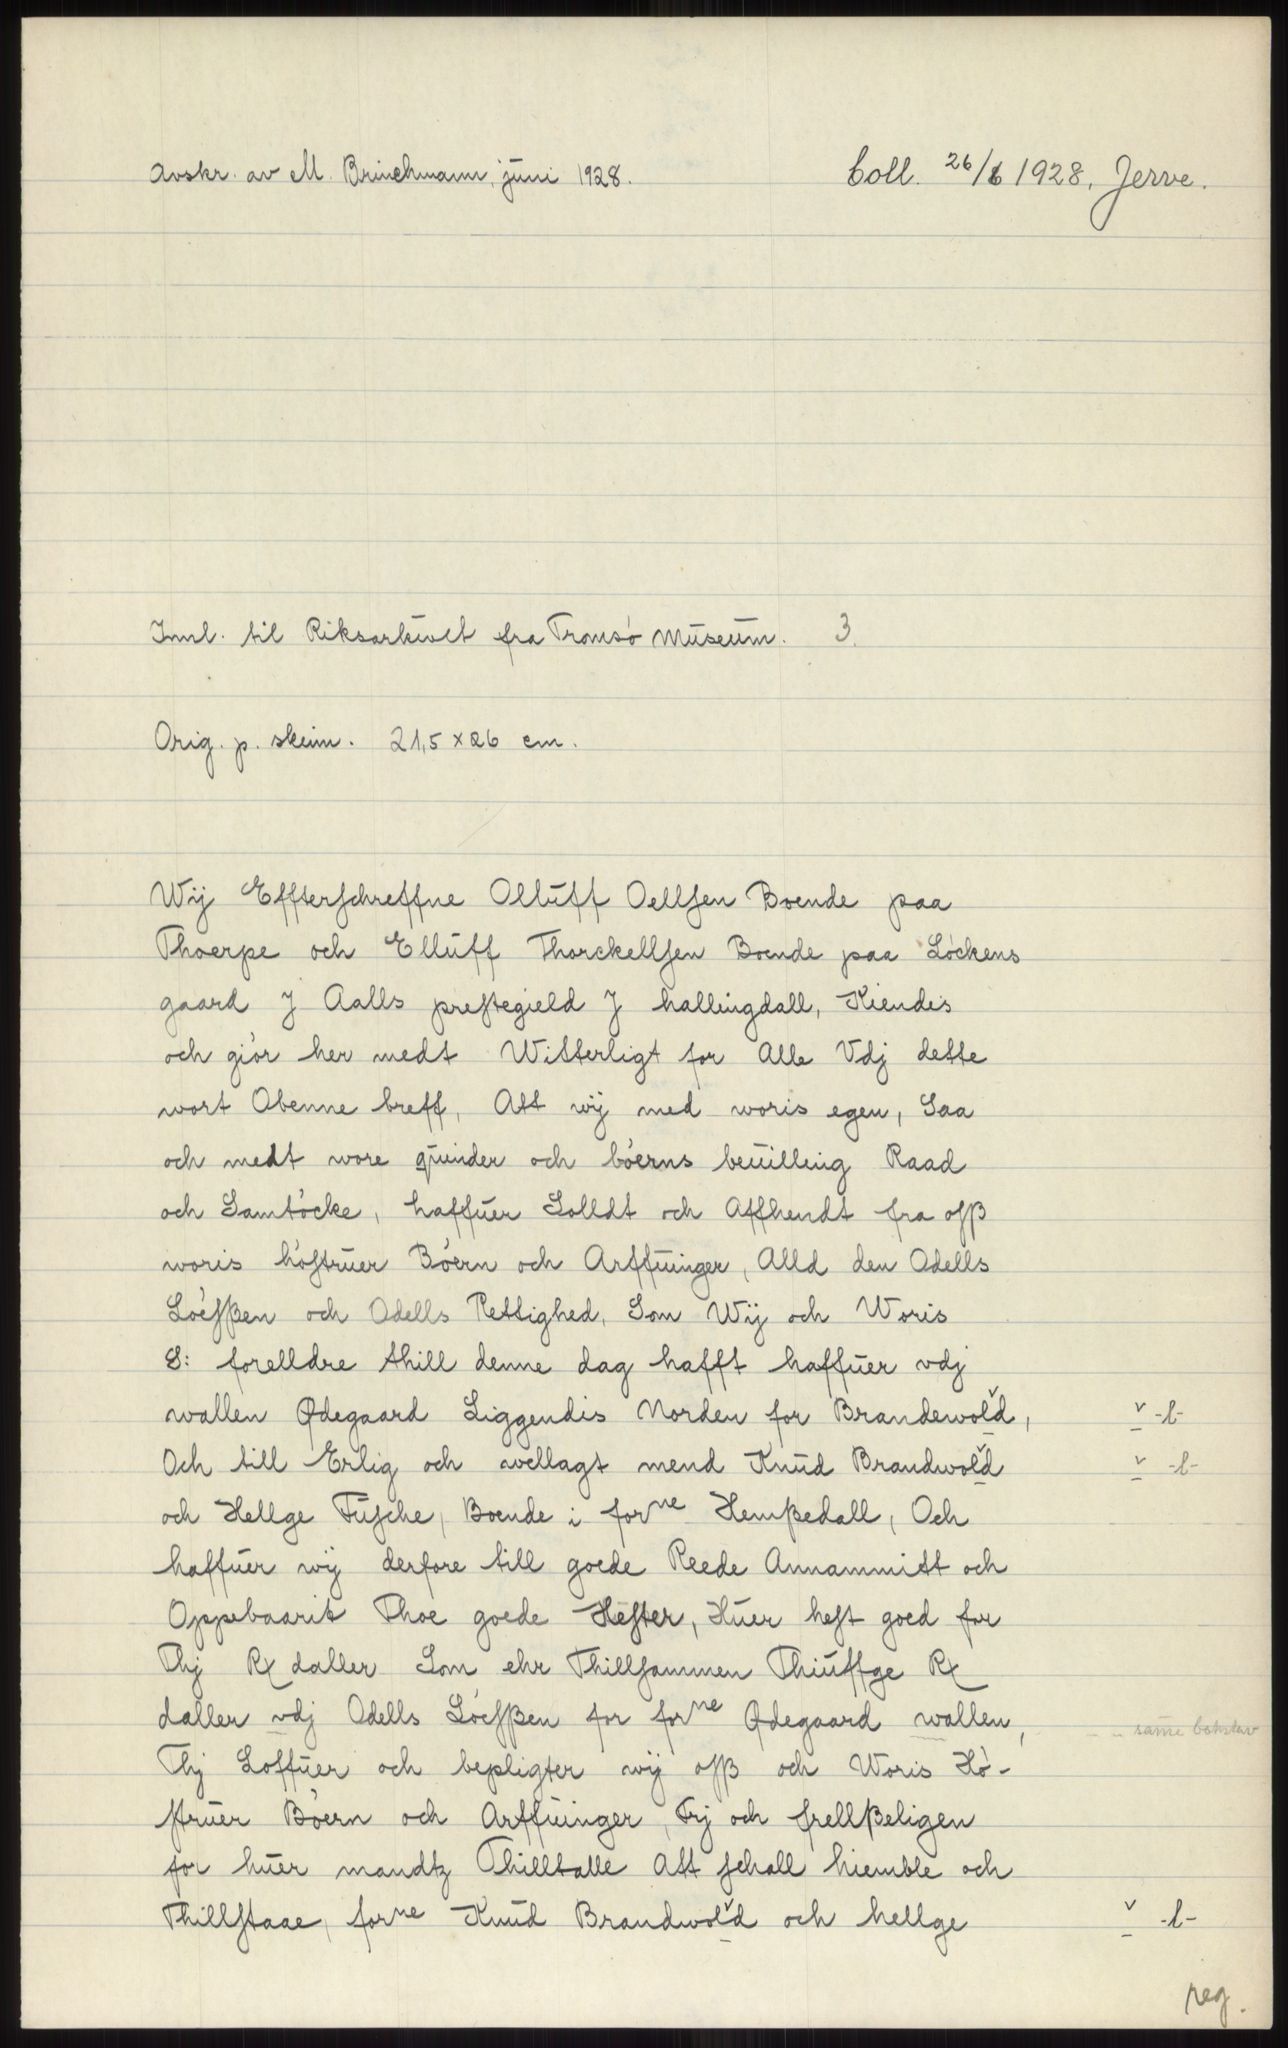 Avskr. av M. Brinchmann, juni 1928.
Coll. 26/6 1928, Jerve.
Innl. til Riksarkivet fra Tromsø Museum. 3.
Orig. p. skinn. 21,5 x 26 cm.
Wij Effterschreffne Olluff Oellsen Boende paa
Thoerpe och Elluff Thorckellsen Boende paa Løckens
gaard J Aalls prestegield J hallingdall, Kiendis
och giør her medt Witterligt for Alle Vdj dette
wort Obenne breff, Att wij med woris egen, Saa
och medt wore quinder och bøerns beuilling Raad
och Samtøcke, haffuer Solldt och Affhendt fra osß
woris høstruer Bøern och Arffuinger, Alld den Odells
Løesßen och Odells Rettighed, Som Wij och Woris
S: forelldre thill denne dag hafft haffuer vdj
wallen Ødegaard Liggendis Norden for Brandewold, v -l-
Och till Erlig och wellagt mend Knud Brandwold v -l-
och Hellge Fusche, Boende i forne Hemßedall, Och
haffuer wij derfore till goede Reede Annammitt och
Oppebaarit Thoe goede Hester, Huer hest goed for
Thj Rx daller Som ehr Thillsammen Thiuffge Rx
daller vdj Odells Løesßen for forne Ødegaard wallen, same bokstav
Thj Loffuer och bepligter wij osß och Woris Hø-
struer Bøern och Arffuinger, Frj och frellßeligen
for huer mandtz Thilltalle Att schall hiemble och
Thillstaae, forne Knud Brandwold och hellge v -l-
reg.